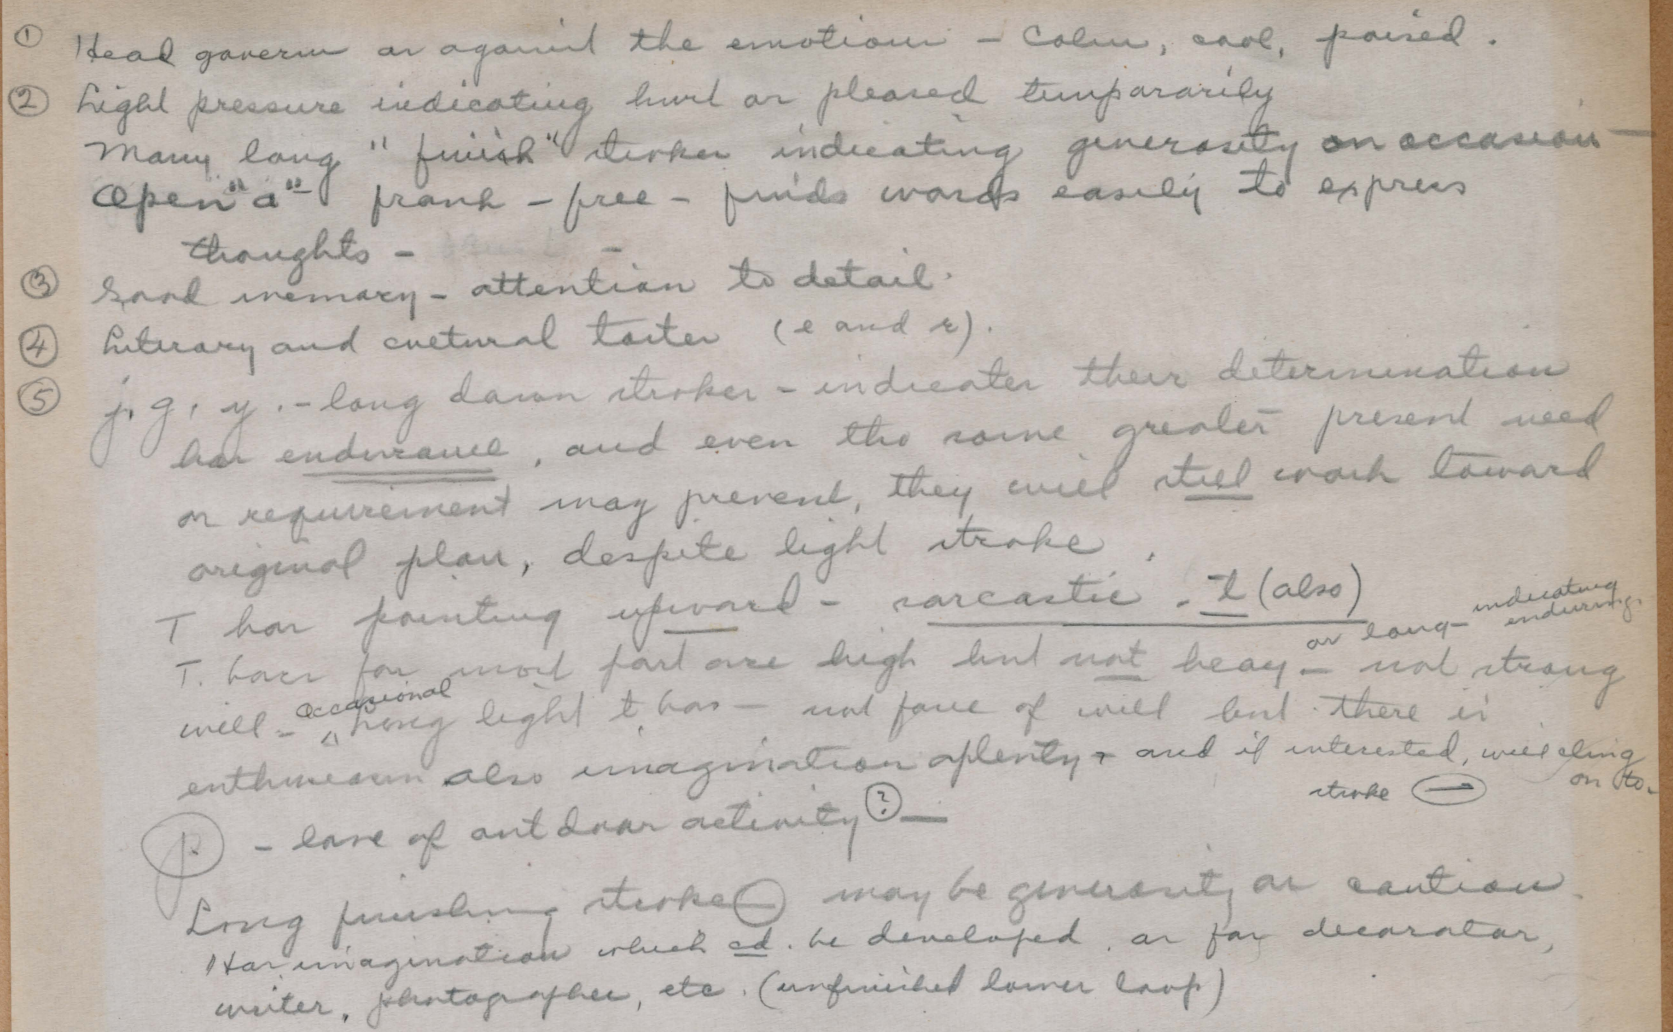 ① Head govern as against the emotions - Calm, cool, poised.
② Light pressure indicating hurt or pleased temporarily
Many long "finish" strokes indicating generosity on occasion -
Open "a" - frank - free - finds words easily to express
thoughts -
③ Good memory - attention to detail.
④ Literary and cultural tastes (e and r).
⑤ j, g, y. - long down strokes - indicates their determination
has endurance, and even tho some greater present need
or requirement may prevent, they will still work toward
original plan, despite light stroke.
T bar pointing upward - sarcastic. - t (also)
or long - indicating enduring
T. bars for most part are high but not heavy - not strong
will - occasional long light t bar - not force of will but there is
enthusiasm also imagination aplenty - and if interested, will cling
on to -
stroke
p - love of outdoor activity ? -
Long finishing stroke may be generosity or caution.
Has imagination which cd. be developed. as for decorator,
writer, photographer, etc. (unfinished lower loop)